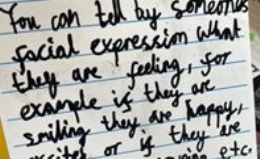 You can tell by someones
facial expression what
they are feeling, for
example if they are
smiling they are happy,
excited or if they are
etc.